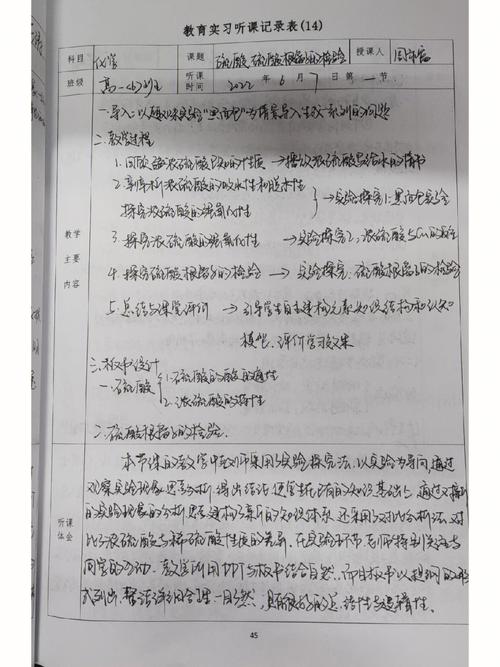 教育实习听课记录表(14)
科目 化学 课题 硫酸、硫酸根离子的检验 授课人
班级 高一(4)班 听课时间 2022 年 6 月 7 日第 一 节
教学主要内容
一.导入:以趣味实验“黑面包”为情景导入生成一系列的问题
二.教学过程
1.回顾浓硫酸的性质 → 播放浓硫酸的
2.分析浓硫酸的吸水性和脱水性
探究浓硫酸的强氧化性 → 实验探究1:黑面包实验
3.探究浓硫酸的强氧化性 → 实验探究2:浓硫酸与Cu的反应
4.探究硫酸根离子的检验 → 实验探究:硫酸根离子的检验
5.总结与课堂评价 → 引导学生自主建构元素知识结构和认知
模型,评价学习效果
三.板书设计
一.硫酸 1.硫酸的酸的通性
2.浓硫酸的特性
二.硫酸根离子的检验.
听课体会
本节课的教学中老师采用了实验探究法,以实验为导向,通过
观察实验现象思考分析,得出结论,使学生在已有的知识基础上,通过对
的实验现象的分析,思考建构了新的知识体系,还采用了对比分析法,对
比了浓硫酸与稀硫酸性质的差异,在实验环节,老师特别关注与
同学的互动,教学所用PPT与板书结合自然,而且板书以提纲的形
式列出,一目了然,具有很好的总结性与逻辑性.
45